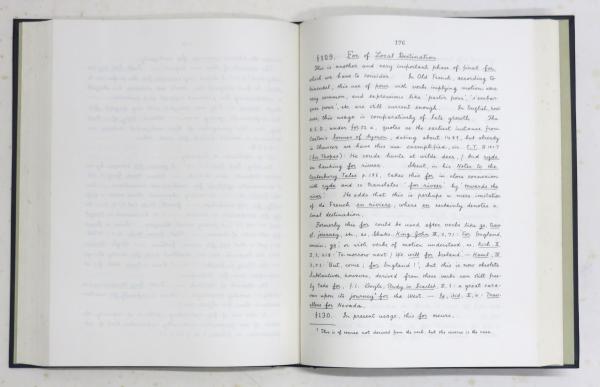 176
§129. For of Local Destination.
This is another and very important phase of final for,
which we have to consider. In Old French, according to
this use of pour with words implying motion was
very common, and expressions like 'partir pour', 's'embar-
quer pour', etc. are still current enough. In English, how-
ever, this usage is comparatively of late growth. The
N.E.D., under for quotes as the earliest instance from
Caxton's Sonnes of Aymon, dating about 1489, but already
in Chaucer we have this use exemplified, viz. C.T. B
(Sir Thopas): He coude hunte at wilde deer, / And ryde
an hauking for river. Skeat, in his Notes to the
Canterbury Tales p. takes this for in close connexion
with ryde and so translates 'for river' by towards the
river! He adds that this is perhaps a mere imitation
of the French en riviere, where en certainly denotes a
local destination.
Formerly this for could be used after verbs like go, trav-
el, journey, etc., as, Shaks. King John For England,
cousin, go; or with verbs of motion understood, as, Rich. II
To-morrow next / We will for Ireland. — Haml. IV
But, come; for England!', but this is now obsolete
Substantives, however, derived from these verbs can still free-
ly take for, f.i. Doyle, Study in Scarlet, a great cara-
van upon its journey¹ for the West. — Id., ibid. Trav-
ellers for Nevada.
§130. In present usage, this for occurs.
¹ This is of course not derived from the verb, but the reverse is the case.